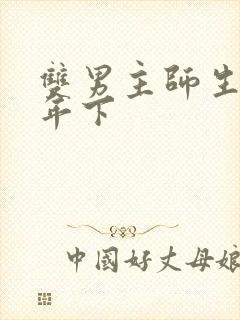 雙男主師生
年下
中國好丈母娘